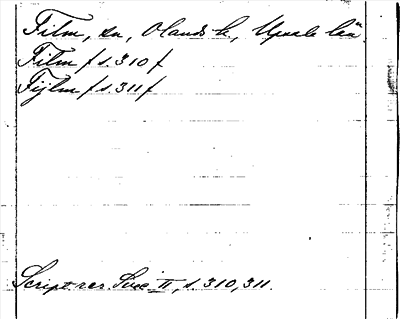 Film, sn, Olands h., Upsala län.
Film f s. 310 f
Fijlm f s. 311 f
Script. rer. Svec. II, s. 310, 311.